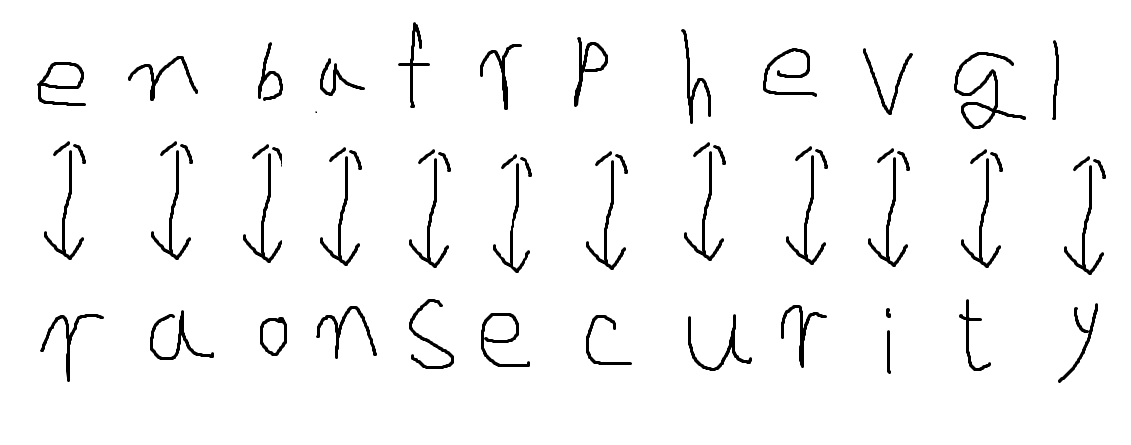 enbatrphevgl
raonsecurity